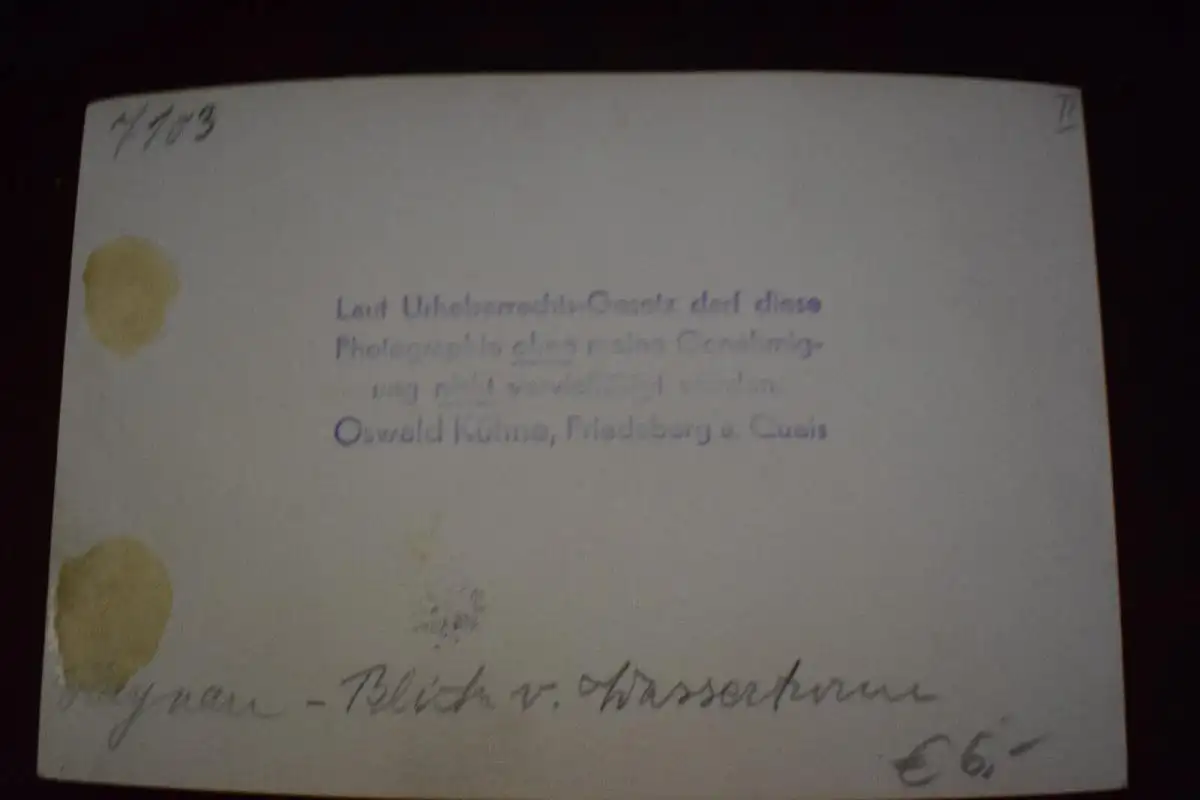 7183
II
Laut Urheberrechts-Gesetz darf diese
Photographie ohne meine Genehmig-
ung nicht vervielfältigt werden.
Oswald Kühne, Friedeberg a. Queis
- Blick v. Wasserturm
€ 6,-